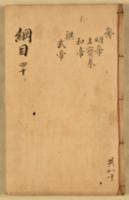 齊
明帝
東昏侯
和帝
梁
武帝
綱目 四十
共八十